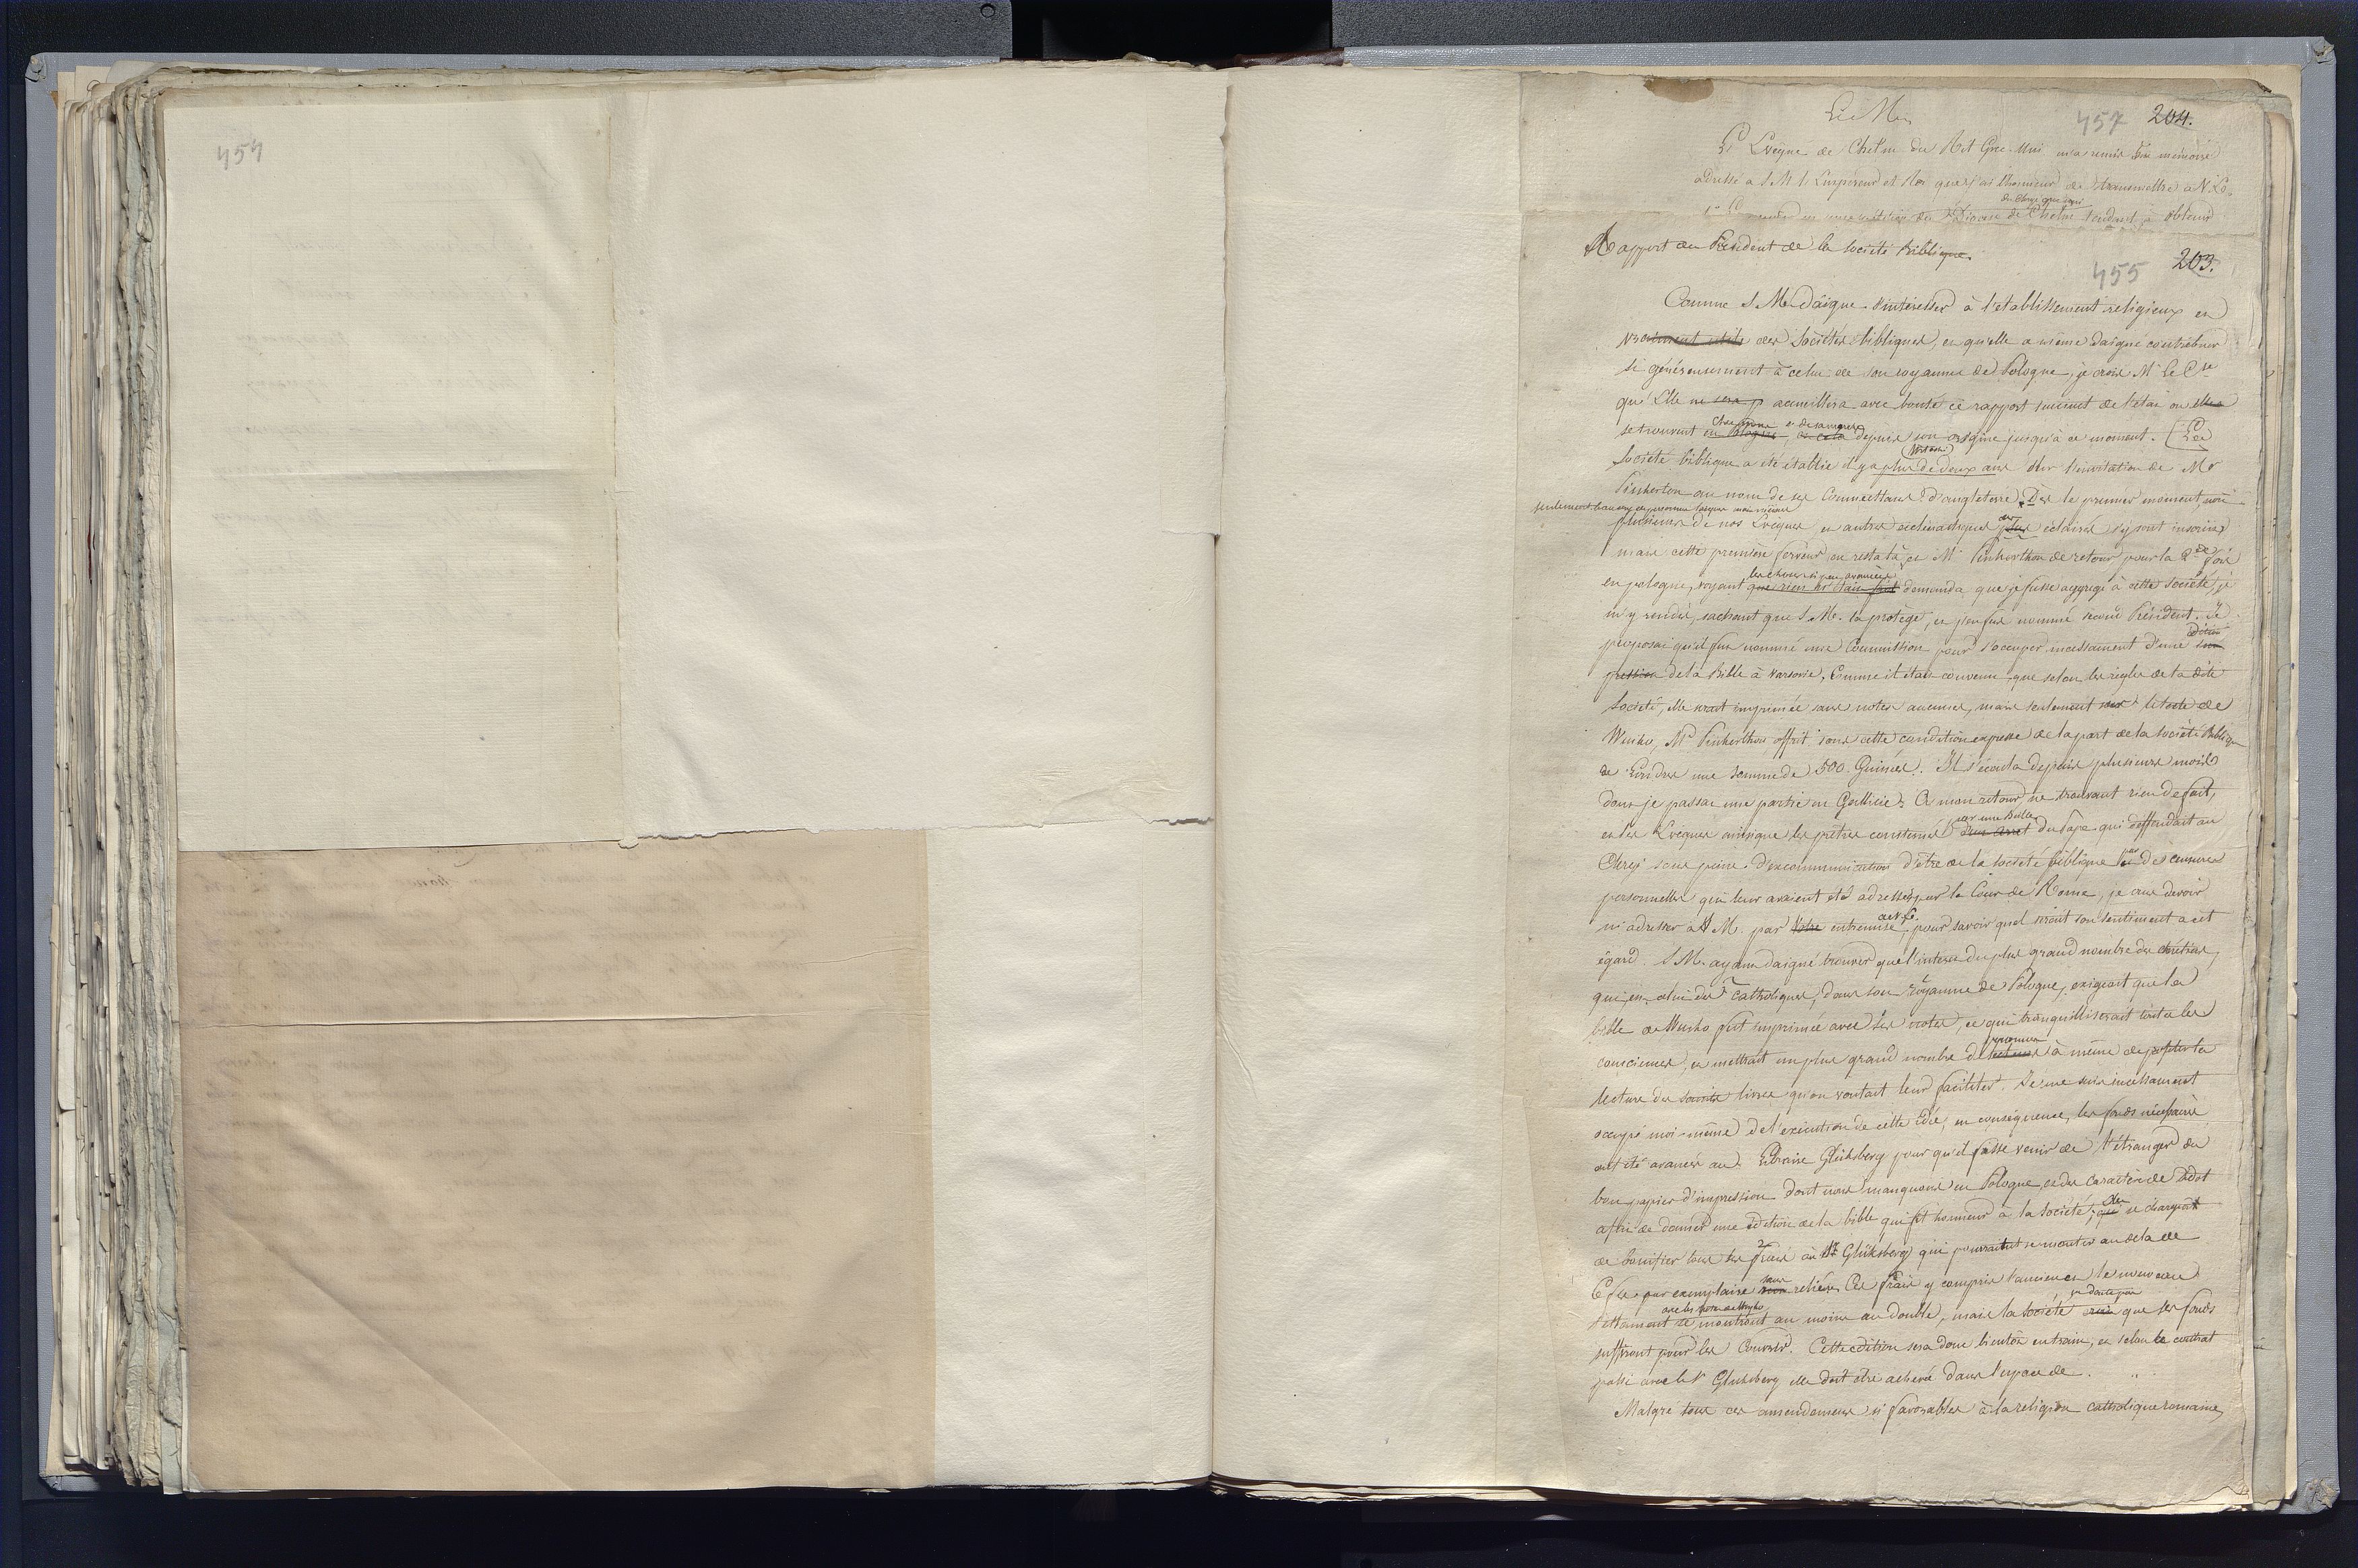 454
457 204.
L'Evêque de Chelm du Rit Grec-Uni m'a remis un mémoire
adressé à S. M. L'Empereur et Roi que j'ai l'honneur de transmettre à V. Ex.
du Clergé grec uni
du Diocèse de Chelm tendant à obtenir
Rapport du Président de la Societé Biblique.
455 203.
Comme S. M. daigne s'intéresser à l'etablissement religieux et
vraiment utile des Sociétés bibliques, et qu'elle a même daigné contribuer
si généreusement à celui de son royaume de Pologne, je crois Mr le Cte
qu'Elle ne sera p accueillera avec bonté ce rapport succinct de l'état ou elles
se trouvent en Pologne, et cela depuis son origine jusqu'à ce moment. La
Societé biblique a été établie il y a plus de deux ans sur l'invitation de Mr
Pinkerton au nom de ses Committans d'angleterre. Dès le premier moment, non
seulement beaucoup de personnes laiques mais même
plusieurs de nos Evêques et autres ecclésiastiques plus éclairés s'y sont inscrits
mais cette première ferveur en resta là, et Mr Pinkerthon de retour pour la 2de fois
les choses si peu avancées
en pologne, voyant que rien n'était fait demanda que je fusse aggrégé à cette Societé, je
m'y rendis, sachant que S. M. la protège, et j'en fus nommé second Président. Je
édition
proposai qu'il fut nommé une Commission pour s'occuper incessament d'une im
pression de la Bible à Varsovie, Comme il était convenu que selon les règles de la dite
Societé, elle serait imprimée sans notes aucunes, mais seulement sur le texte de
Wuiko, Mr Pinkerthon offrit sous cette condition expresse de la part de la Societé Biblique
de Londres une somme de 500 Guinées. Il s'écoula depuis plusieurs mois
dont je passai une partie en Gallicie. A mon retour ne trouvant rien de fait,
par une Bulle
et les Evêques ainsi que les prêtres consternés d'un arret du Pape qui deffendait au
Clergé sous peine d'excommunication d'être de la Societé biblique par des censures
personnelles qui leur avaient été adressées par la Cour de Rome, je crus devoir
de V. E.
m'adresser à S. M. par Votre entremise, pour savoir quel serait son sentiment a cet
égard. S. M. ayant daigné trouver que l'interet du plus grand nombre des chrétiens,
qui est celui des Catholiques, dans son royaume de Pologne, exigeait que la
bible de Wuiko fut imprimée avec les notes, ce qui tranquilliserait toutes les
personnes
consciences, et mettrait un plus grand nombre de lecteurs à même de profiter la
lecture des saints livres qu'on voulait leur faciliter. Je me suis incessament
occupé moi-même de l'exécution de cette idée, en conséquence, les fonds nécessaires
ont été avancés au Libraire Glüksberg pour qu'il fasse venir de l'étranger du
bon papier d'impression dont nous manquons en Pologne, et des caractères de Didot
afin de donner une édition de la bible qui fit honneur à la societé; Elle se chargeant
de bonifier tous les frais au Sr Glüksberg qui pourraient se monter au dela de
6 fl. par exemplaire sans reliure. Ces frais y compris l'ancien et le nouveau
avec les notes de Wuyko
Testament se montront au moins au double, mais la societé croit que ses fonds
ne doute pas
suffiront pour les Couvrir. Cette edition sera donc bientôt en train, et selon le contrat
passé avec le Sr Gluksberg elle doit être achevée dans l'espace de.
Malgré tous ces amendemens si favorables à la religion catholique romaine,